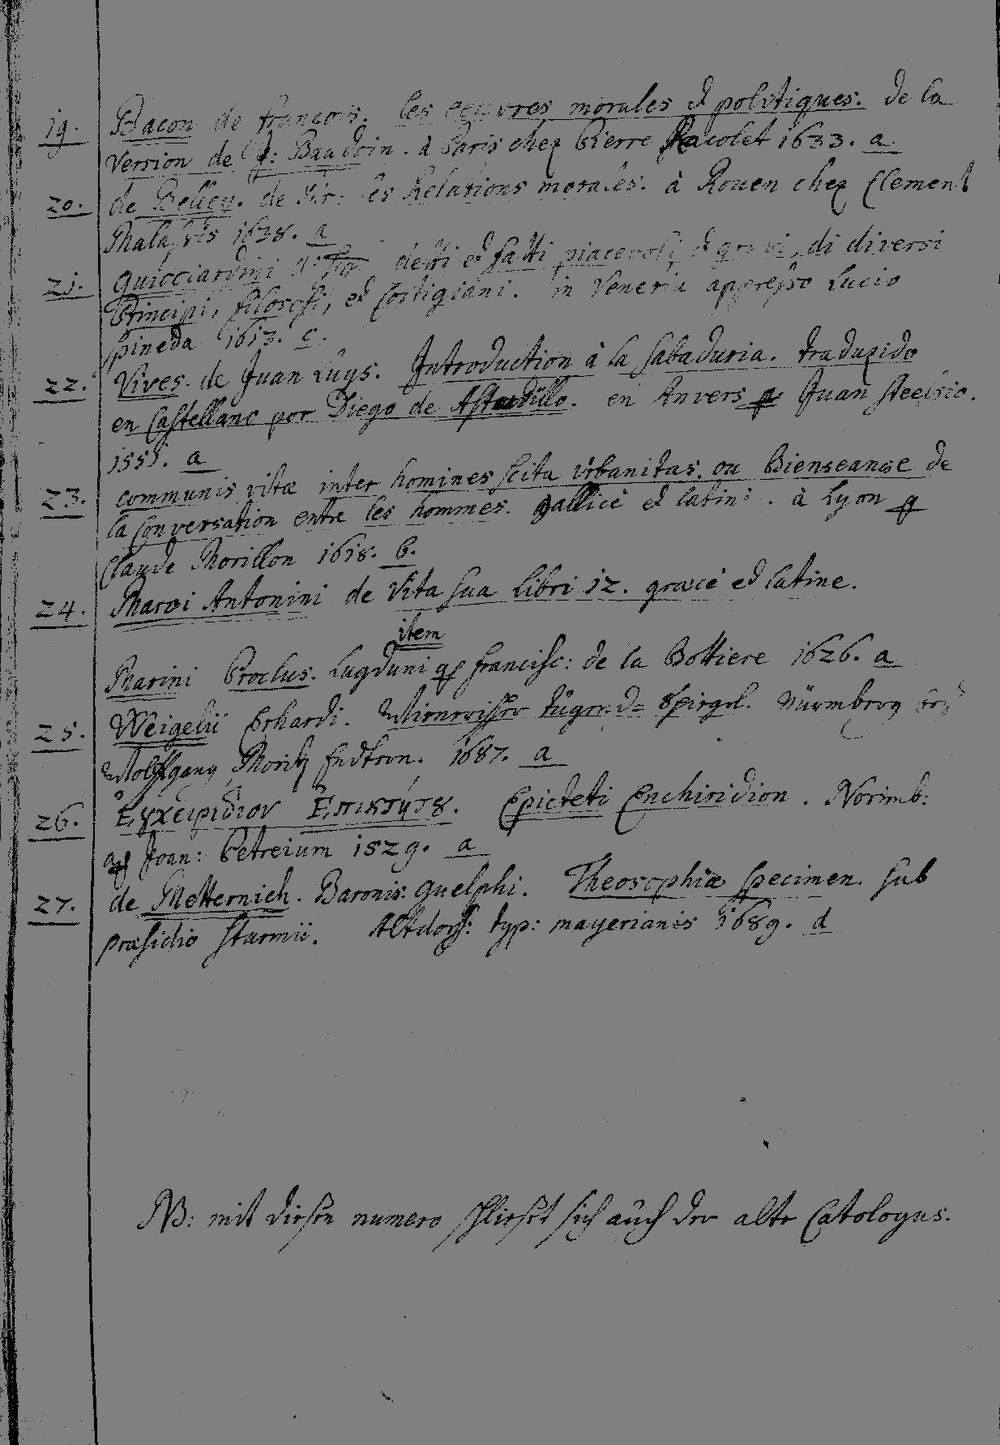 19. Bacon de francois. les oeuvres morales et politiques. de la
version de J: Baudoin. à Paris chez Pierre Racolet 1633. a
20. de Belley. de Sr: les Relations morales. à Rouen chez Clement
Malassis 1638. a
21. Guicciardini detti et fatti piacevoli et gravi, di diversi
Principi, filosofi, et Cortigiani. in Venetia appresso Lucio
Spineda 1613. c.
22. Vives. de Juan Luys. Introduction à la sabaduria. traduzido
en Castellano por Diego de Astudillo. en Anvers Juan Steelsio.
1551. a
23. communis vitæ inter homines scita urbanitas. ou Bienseance de
la Conversation entre les hommes. gallicè et latinè. à Lyon
Claude Morillon 1618. b.
24. Marci Antonini de Vita sua Libri 12. græcè et latine.
item
Marini Proclus. Lugduni ap francisc: de la Bottiere 1626. a
25. Weigelii Erhardi. Wienerischer Tugend= Spiegel. Nürmberg bey
Wolffgang Moritz Endtern. 1687. a
26. Ἐγχειριδιον Ἐπικτήτȣ. Epicteti Enchiridion. Norimb:
ap Joan: Petreium 1529. a
27. de Metternich. Baronis Guelphi. Theosophiæ specimen. sub
præsidio Sturmii. Altdorf: typ: mayerianis 1689. d
NB: mit diesen numero schliesst sich auch der alte Catologus.